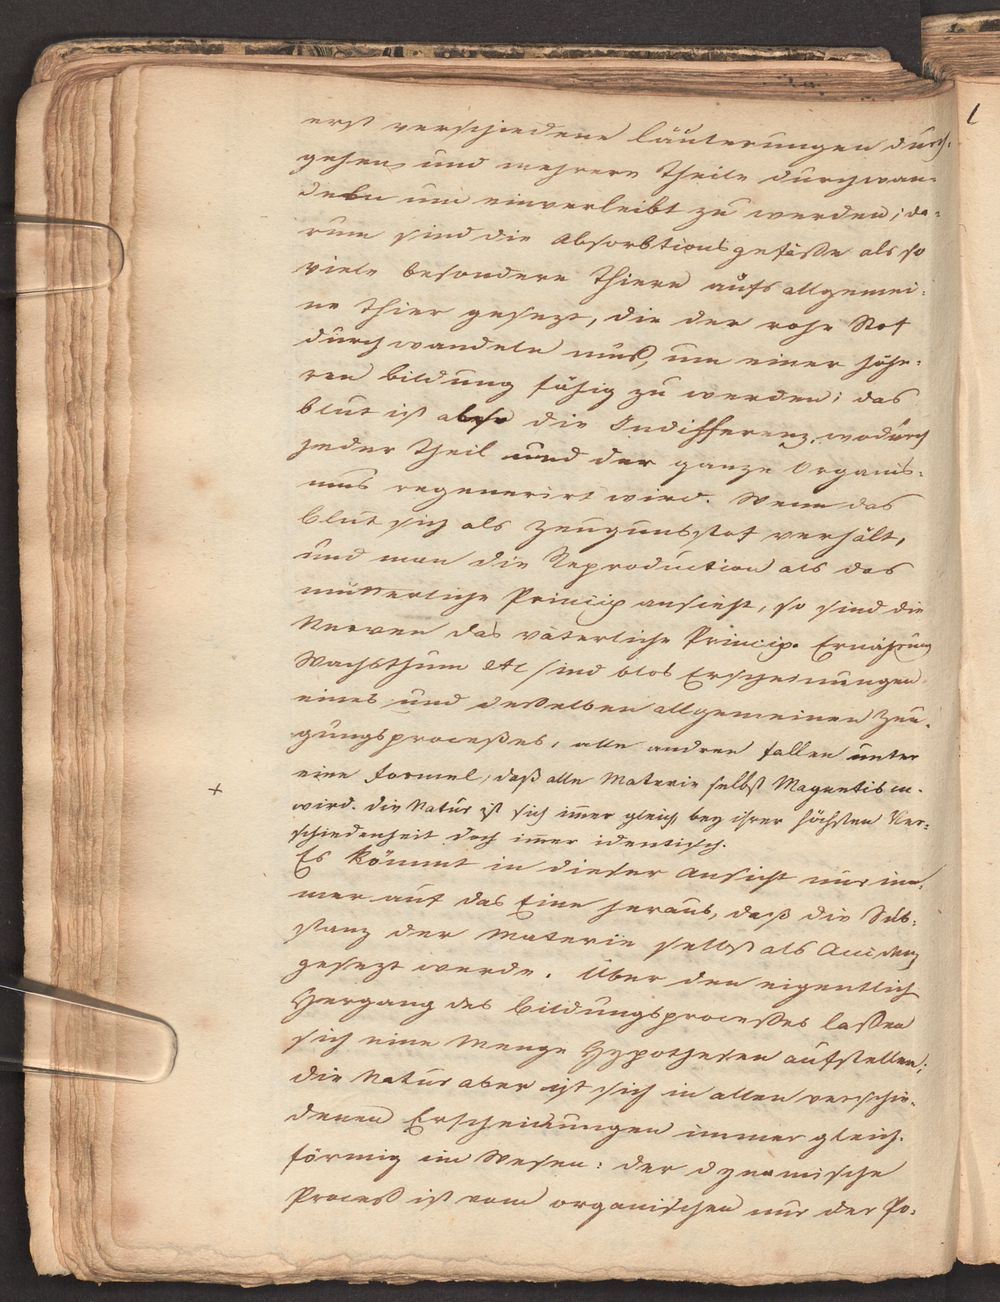 erst verschiedene läuterungen durch-
gehen, und mehrere Theile durchwan-
deln um einverleibt zu werden; da-
rum sind die Absorbtionsgefäße als so
viele besondere Thiere aufs allgemei-
ne Thier gesezt, die der rohe Stof
durchwandeln muß, um einer höhe-
ren bildung fähig zu werden; das
blut ist aber die Indifferenz, wodurch
jeder Theil und der ganze Organis-
mus regenerirt wird. Wenn das
blut sich als Zeugunsstof verhält,
und man die Reproduction als das
mütterliche Princip ansieht, so sind die
Nerven das väterliche Princip. Ernährung
Wachsthum etc sind blos Erscheinungen
eines und deßelben allgemeinen Zeu-
gungsproceßes, alle andren fallen unter
eine formel, daß alle Materie selbst Magnetism.
+ wird. die Natur ist sich imer gleich bey ihrer höchsten Ver-
schiedenheit doch imer identisch.
Es kömmt in dieser Ansicht nur im-
mer auf das Eine heraus, daß die Sub-
stanz der Materie selbst als Accidenz
gesezt werde. Über den eigentlich
Hergang des bildungsproceßes laßen
sich eine Menge Hypothesen aufstellen;
die Natur aber ist sich in allen verschie-
denen Erscheinungen immer gleich-
förmig im Wesen: der dynamische
Proceß ist vom organischen nur der Po-